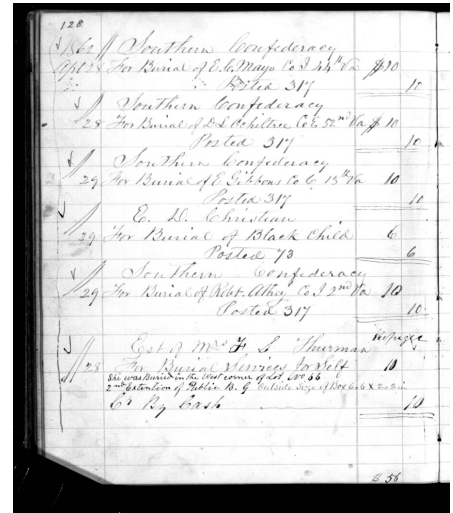 128
1862 // Southern Confederacy
Apl 28 For Burial of E. C. Mayo Co I 44th Va $10
Posted 317 10
// Southern Confederacy
28 For Burial of D L Ochiltree Co E 52nd Va $10
Posted 317 10
// Southern Confederacy
29 For Burial of E Gibbons Co C 13th Va 10
Posted 317 10
// E. D. Christian
29 For Burial of Black Child 6
Posted 73 6
// Southern Confederacy
29 For Burial of Robt. Athey Co I 2nd Va 10
Posted 317 10
// Est of Mrs F S Thurman Refugee
28 For Burial Services for Self 10
She was Buried in the West corner of Lot, No 56
2nd Extention of Public B. G. Outside Size of Box 6.6 X 2.2 in
Cr By Cash 10
$ 56